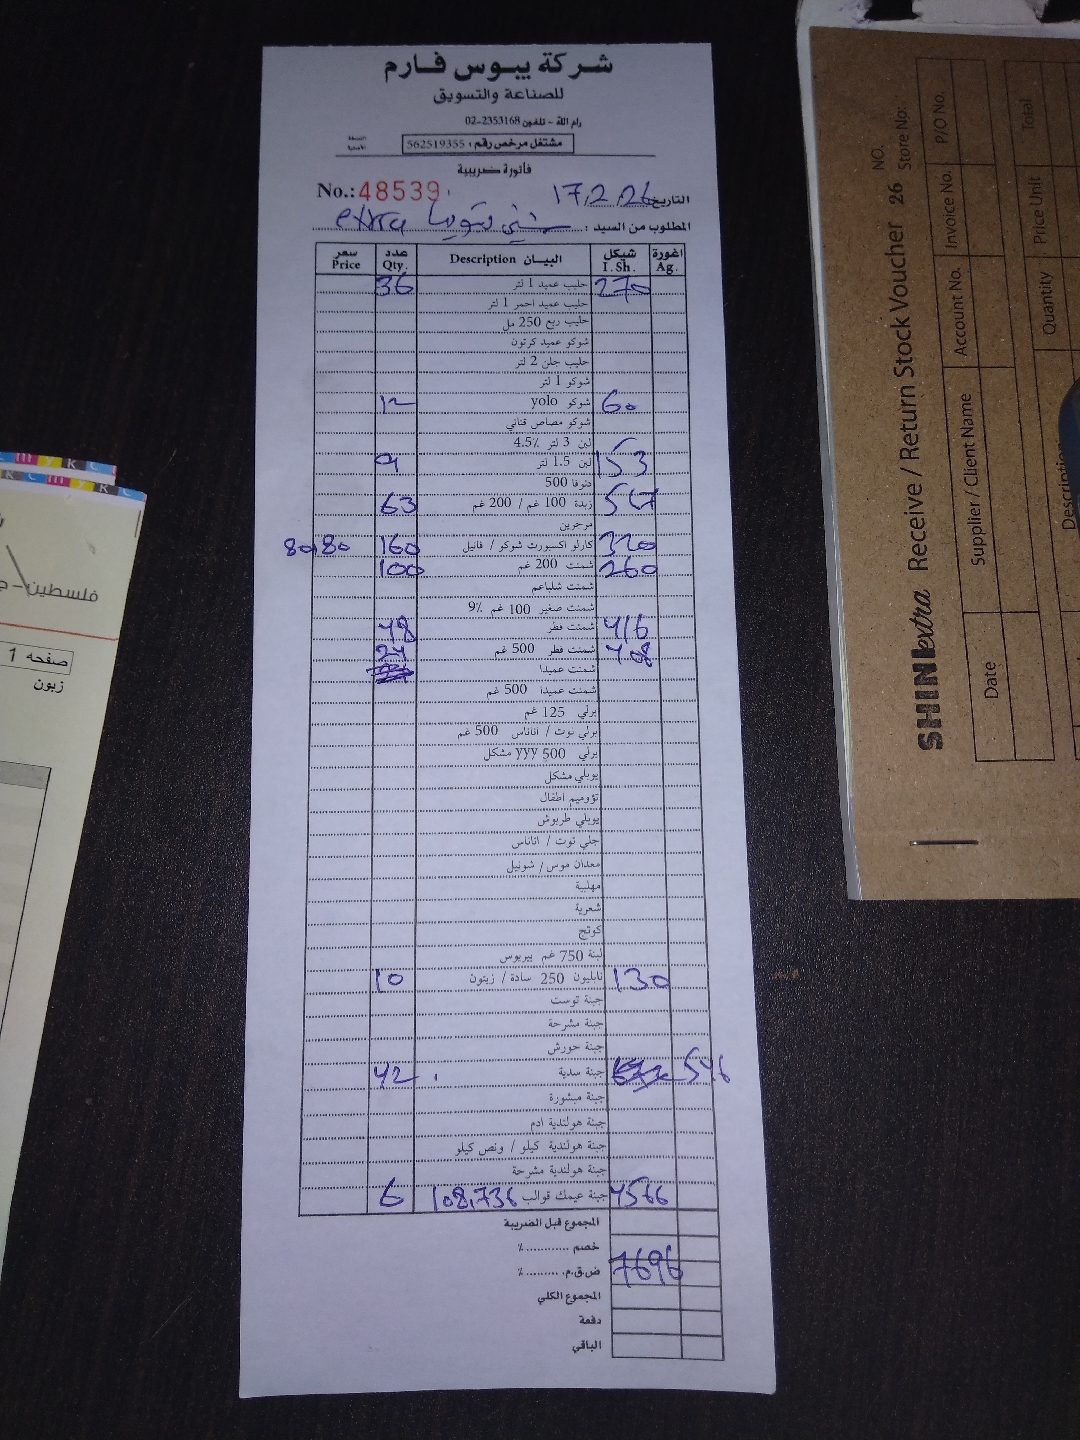 شركة يبوس فارم
للصناعة والتسويق
رام الله - تلفون 02-2353168
مشتغل مرخص رقم: 562519355
فاتورة ضريبية
No.: 48539
التاريخ 17.2.26
المطلوب من السيد: extra
سعر Price عدد Qty. البيان Description شيكل I. Sh. اغورة Ag.
36 حليب عميد 1 لتر 270
حليب عميد احمر 1 لتر
حليب ربع 250 مل
شوكو عميد كرتون
حليب جلن 2 لتر
شوكو 1 لتر
12 شوكو yolo 60
شوكو مصاص قناني
لبن 3 لتر 4.5٪
9 لبن 1.5 لتر 153
500
63 زبدة 100 غم / 200 غم 567
مرجرين
80,80 160 كارلو اكسبورت شوكو / فانيل 320
100 شمنت 200 غم 260
شمنت شلباعم
شمنت صغير 100 غم 9٪
48 شمنت فطر 416
24 شمنت فطر 500 غم 408
شمنت عميدا
شمنت عميدا 500 غم
برلي 125 غم
برلي توت / اناناس 500 غم
برلي yyy 500 مشكل
يوبلي مشكل
اطفال
يوبلي طربوش
جلي توت / اناناس
معدان موس / شونيل
مهلبية
شعرية
كوتج
لبنة 750 غم
10 نابليون 250 سادة / زيتون 130
جبنة توست
جبنة مشرحة
جبنة حورش
42 جبنة سدية 546
جبنة مبشورة
جبنة هولندية ادم
جبنة هولندية كيلو / ونص كيلو
جبنة هولندية مشرحة
6 جبنة عيمك قوالب 108,736 4566
المجموع قبل الضريبة
خصم ............٪
ض.ق.م. .........٪ 7696
المجموع الكلي
دفعة
الباقي
SHINI extra Receive / Return Stock Voucher 26
NO.
Store No:
Date
Supplier / Client Name
Account No.
Invoice No.
P/O No.
Quantity
Price Unit
Total
فلسطين - ج
صفحه 1
زبون